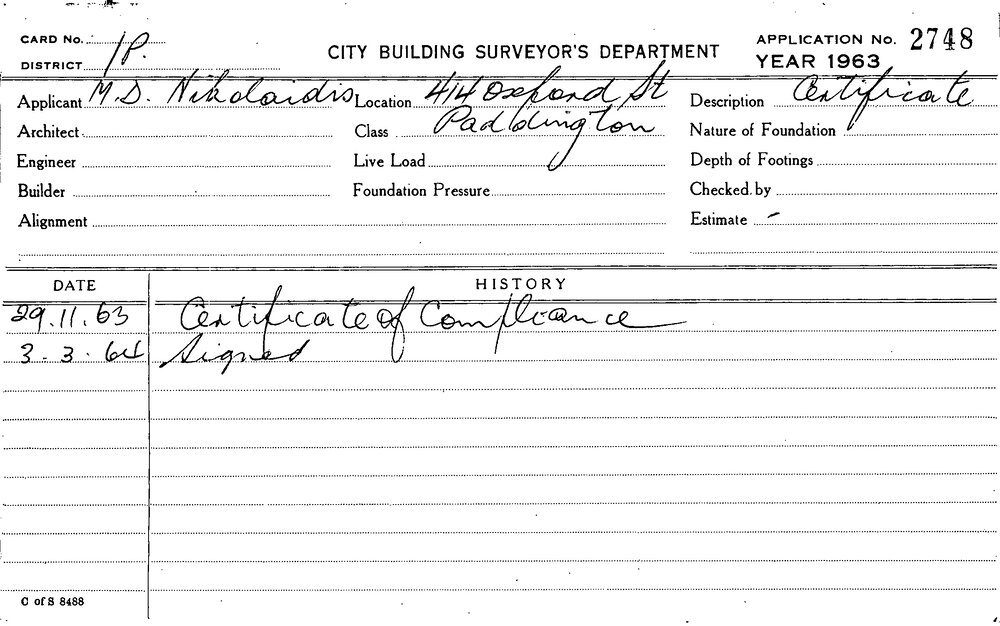 CARD No. 1P. CITY BUILDING SURVEYOR'S DEPARTMENT APPLICATION No. 2748
DISTRICT YEAR 1963
Applicant M.D. Nikolaidis Location 414 Oxford St Description Certificate
Architect Class Paddington Nature of Foundation
Engineer Live Load Depth of Footings
Builder Foundation Pressure Checked by
Alignment Estimate -
DATE HISTORY
29.11.63 Certificate of Compliance
3.3.64 Signed
C of S 8488